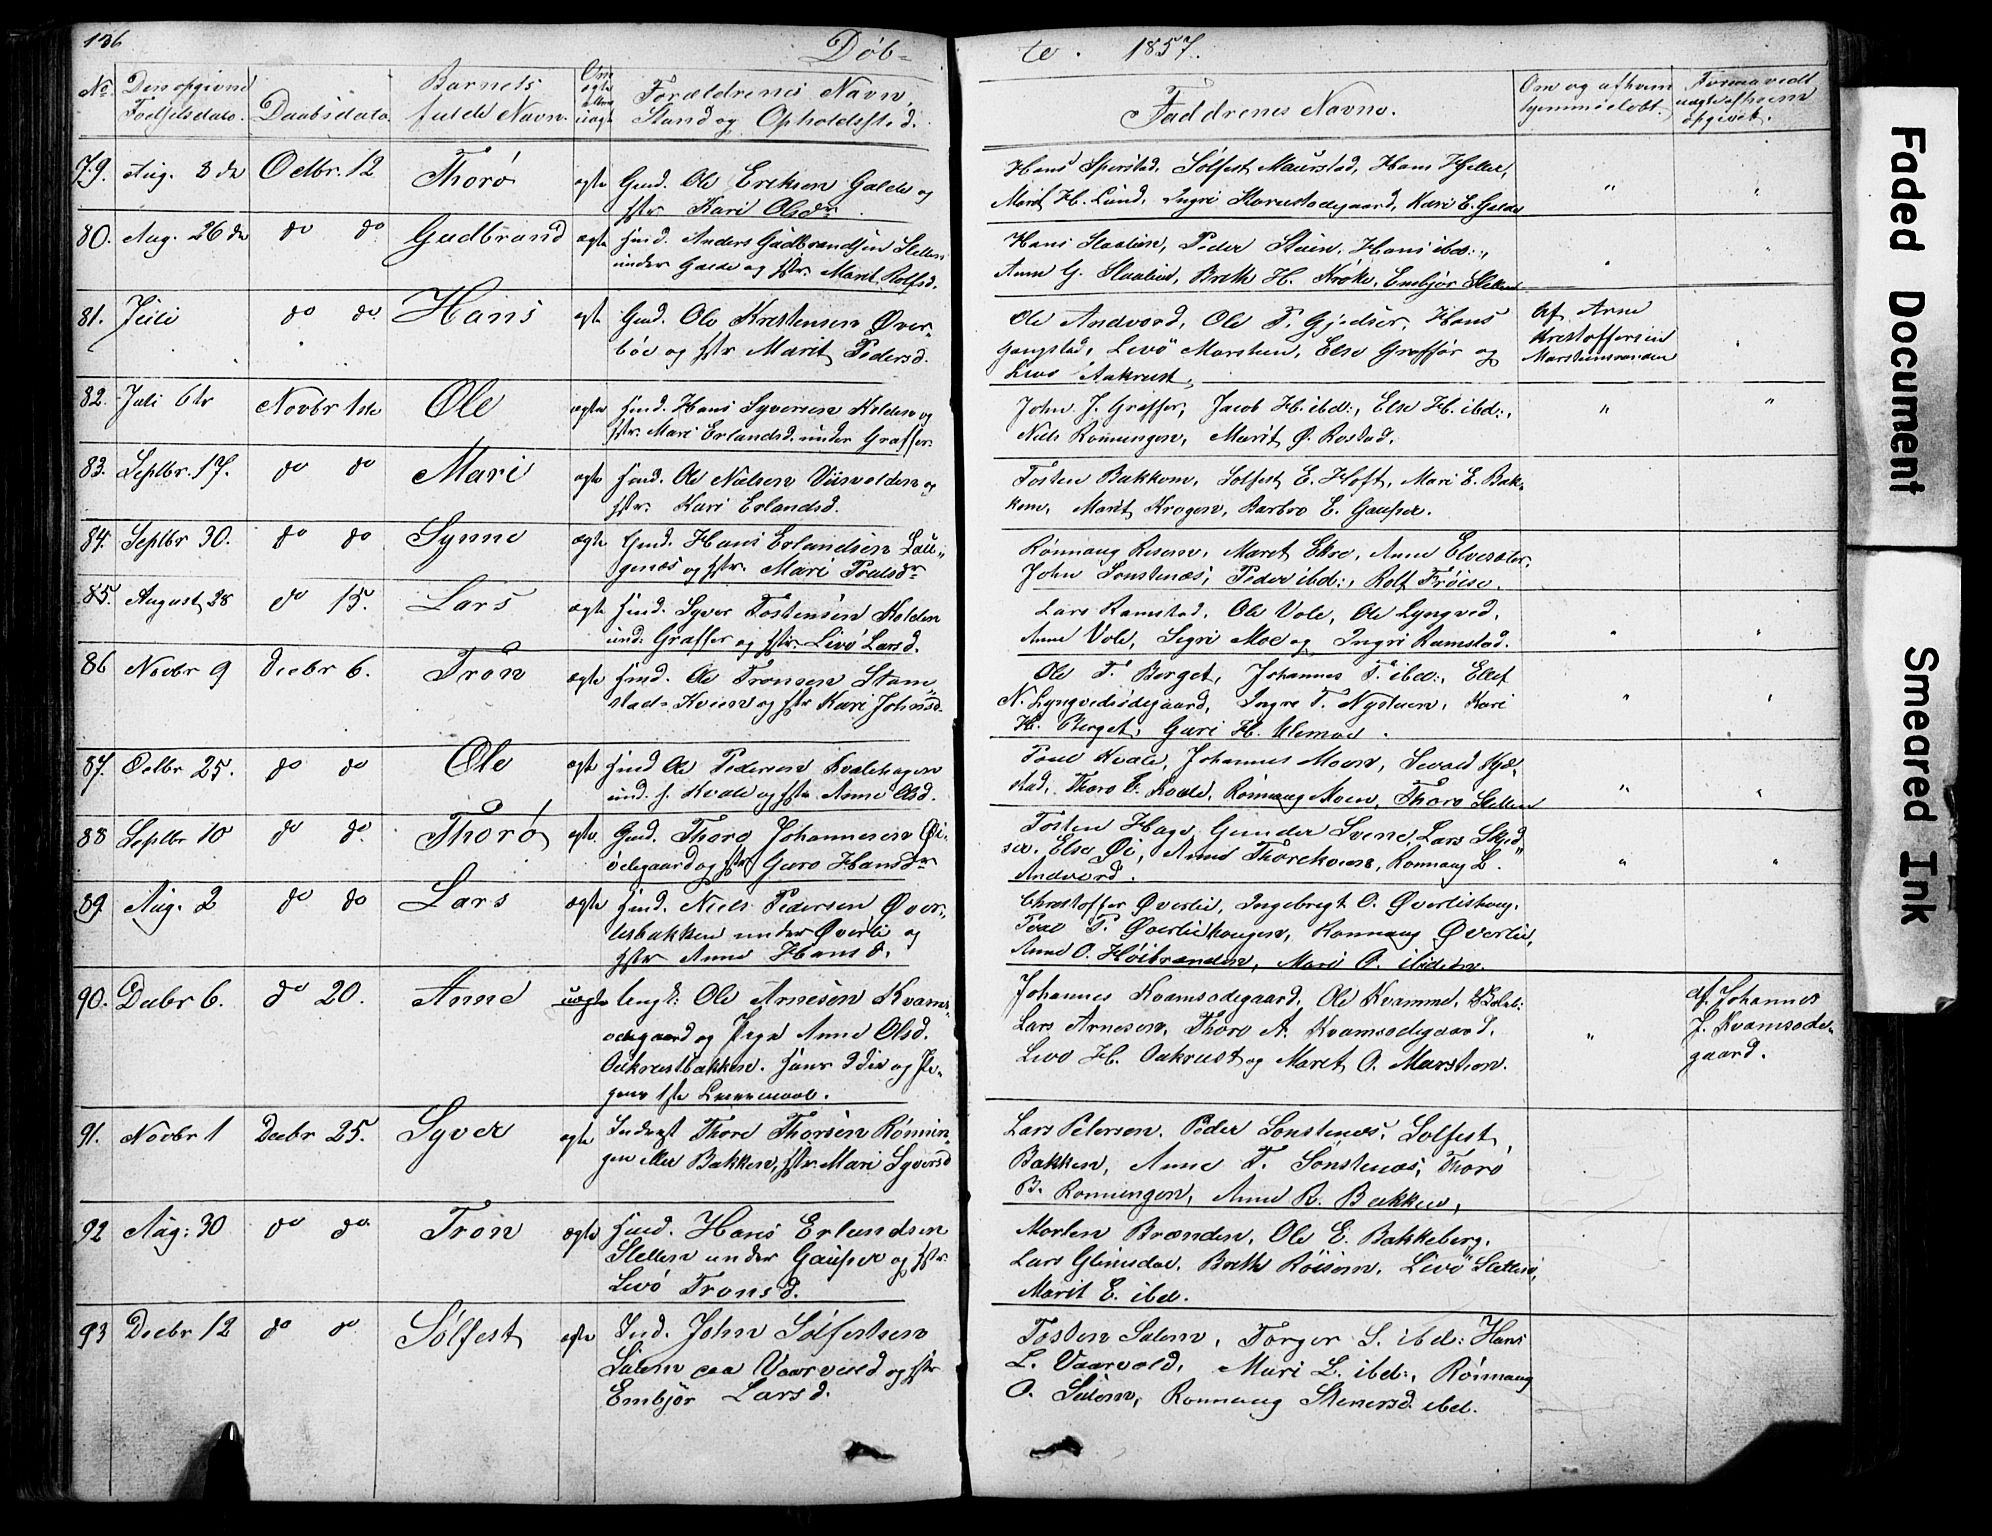 136
Døb-
te. 1857.
No
Den opgivne Fødselsdato.
Daabsdato.
Barnets fulde Navn.
Om ægte eller uægte
Forældrenes Navn, Stand og Opholdsted.
Faddrenes Navne.
Om og af hvem hjemmedøbt.
Formavedt uægte af hvem opgivet.
79. Aug. 8de Octbr. 12 Thorø ægte Gmd. Ole Eriksen Galde og
Hstr Kari Olsdr.
Hans Sperstad, Solfest Maurstad, Hans Hjelle,
Marit H. Lund, Ingri Storustodegaard, Kari E. Galde
80. Aug. 26de do do Gudbrand ægte Hmd. Anders Gudbrandsen Sletten
under Galde og Hstr. Marit Rolfsd.
Hans Slaalien, Peder Støen, Hans ibd:,
Anne G. Slaalien, Breth H. Kroke, Embjør Sletten
81. Juli do do Hans ægte Gmd. Ole Krestensen Øver-
bøe og Hstr Marit Pedersd.
Ole Andvord, Ole P. Gjedser, Hans
Gangstad, Livø Marstein, Else Graffer og
Livø Aakrust,
Af Arne
Krestoffersen
Marsteinsranden
82. Juli 6te Novbr 1ste Ole ægte Hmd. Hans Syversen Kolden og
Hstr. Mari Erlandsd. under Graffer
John J. Graffer, Jacob H. ibd:, Else H. ibd:,
Niels Rønningen, Marit Ø. Rostad.
83. Septbr. 17. do do Mari ægte Hmd. Ole Nielsen Viisvolden og
Hstr. Kari Erlandsd.
Tosten Bakkom, Solfest E. Hoft, Mari E. Bak-
kem, Marit Krogen, Barbro E. Gauper.
84. Septbr 30. do do Synne ægte Gmd. Hans Erlandsen Lau-
genæs og Hstr. Mari Poulsdr
Rønnaug Risem, Maret Ekre, Anne Elvesæter,
John Sonstenæs, Peder ibd:, Rolf Frøise.
85. August 28 do 15. Lars ægte Hmd. Syver Tostensen Kolden
und: Graffer og Hstr. Livø Larsd.
Lars Ramstad, Ole Vole, Ole Lyngved,
Anne Vole, Segri Moe og Ingri Ramstad.
86 Novbr 9 Decbr 6. Tron ægte Hmd. Ole Tronsen Stam-
stad-Kvien og Hstr Kari Johnsd.
Ole T. Berget, Johannes T. ibd:, Ellef
N. Lyngvedsødegaard, Ingre T. Nystuen, Kari
H. Berget, Guri H. Ulemoe.
87. Octbr 25. do do Ole ægte Hmd Ole Pedersen Kvalehagen
und. s. Kvale og Hstr Anne Olsd.
Poul Kvale, Johannes Moen, Sevald Kje-
stad, Thora E. Kvale, Rønnaug Moen, Thora Sletten
88 Septbr 10 do do Thorø ægte Gmd. Thore Johannesen Øi-
ødegaard og Hstr Guro Hansdr
Tosten Hage, Gunder Svene, Lars Skjed-
ser, Else Øi, Anne Thorekveen, Ronnaug L.
Andvord.
89. Aug. 2 do do Lars ægte Hmd. Niels Pedersen Øver-
liesbakken under Øverlie og
Hstr Anne Hansd.
Christoffer Øverlie, Ingebregt O. Øverlishoug,
Poul P. Øverliehougen, Ronnaug Øverlie,
Anne O. Høibranden, Mari P. ibidem.
90. Decbr 6. do 20. Anne uægte Ungk: Ole Arnesen Kvams-
ødegaard og Pige Anne Olsd.
Aakrustbakken. Hans 2den og Pi-
gens 1ste Leiermaal.
Johannes Kvamsødegaard, Ole Kvamme,
Lars Arnesen, Thore A. Kvamsødegaard,
Livø H. Aakrust og Maret O. Marstien.
af. Johannes
J. Kvamsøde-
gaard.
91. Novbr 1 Decbr 25. Syver ægte Inderst Thore Thorsen Rønnin-
gen eller Bakken, Hstr Mari Syversd
Lars Petersen, Peder Sonstenæs, Solfest
Bakken, Anne T. Sonstenæs, Thorø
B. Rønningen, Anne R. Bakken,
92 Aug: 30 do do Tron ægte Hmd. Hans Erlandsen
Sletten under Gauper og Hstr.
Livø Tronsd.
Morten Brænden, Ole E. Bakkeberg,
Lars Glimsdal, Breth Røisem, Livø Sletten,
Marit E. ibd.
93 Decbr 12 do do Sølfest ægte Ind. John Sølfestsen
Sulem paa Vaarvold og Hstr
Embjør Larsd.
Tosten Sulem, Torger S. ibd: Hans
L. Vaarvold, Mari L. ibd:, Rønnaug
O. Sulem, Ronnaug Stenersd. ibd.
Faded Document
Smeared Ink